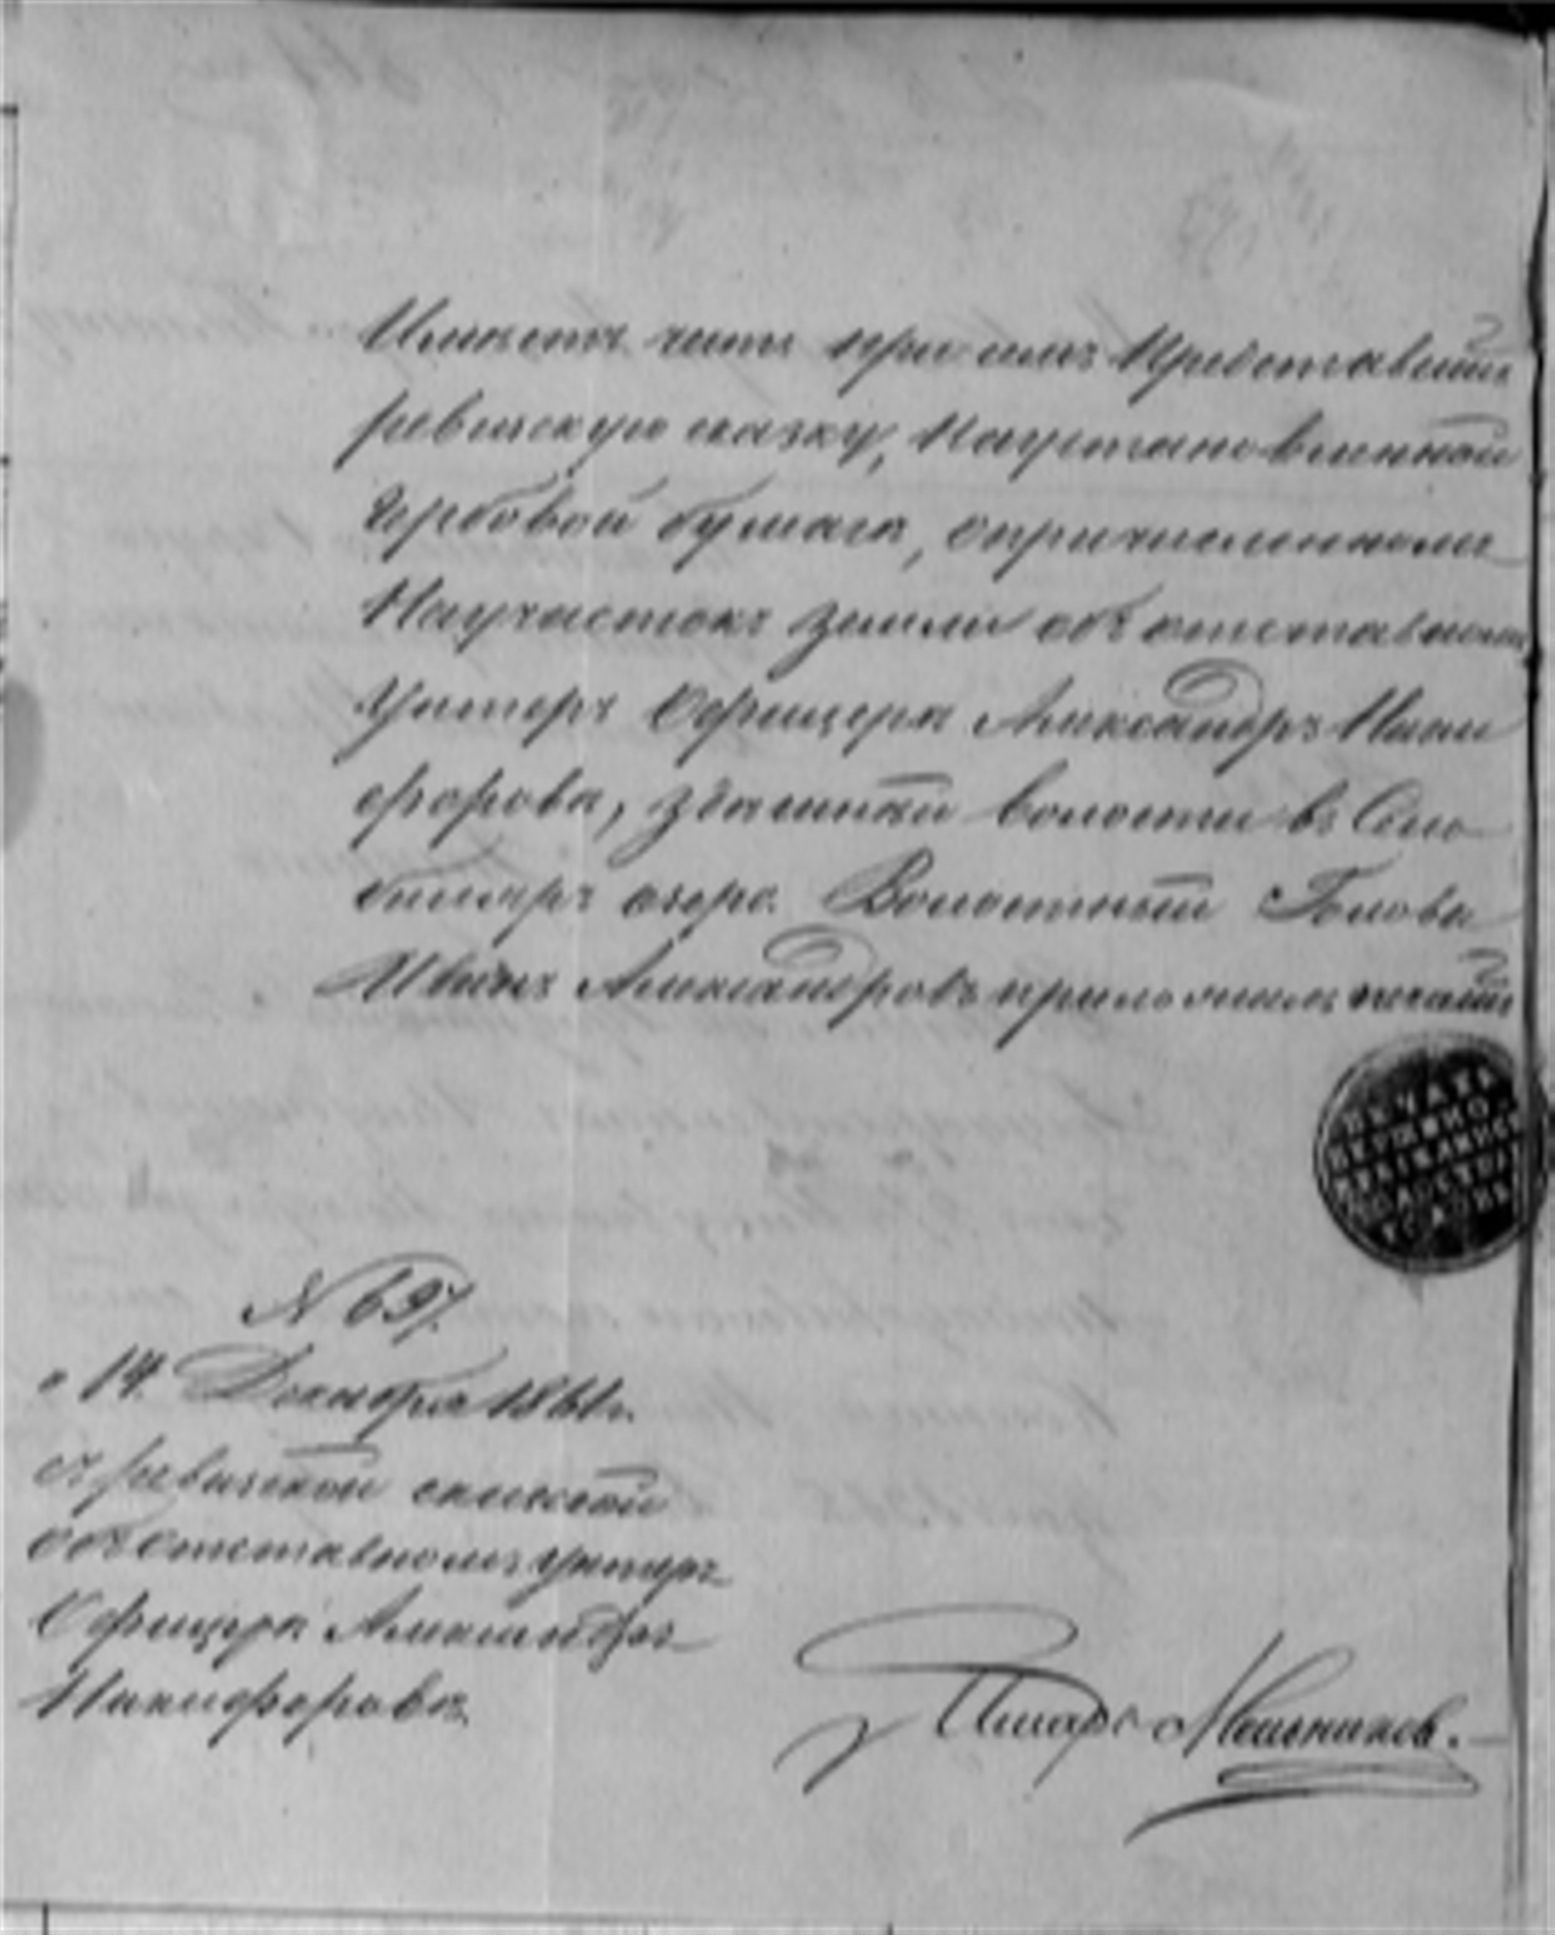 Имѣетъ честь при семъ представить
ревизскую сказку, Наустановленной
Гербовой бумагѣ, опричисленномъ
Научастокъ земли объ отставномъ
Унтеръ Офицерѣ Александръ Ники
форовѣ, здешней волости въ Село
озеро. Волостный Голова
Иванъ Александровъ приложилъ печать
ПЕЧАТЬ
ВОЛОСТН
ГОЛОВЫ
N 697.
14. Декабря 1861 г.
съ ревизской сказкой
объ отставномъ унтеръ
Офицерѣ Александръ
Никифоровѣ
Писарь Мельниковъ.